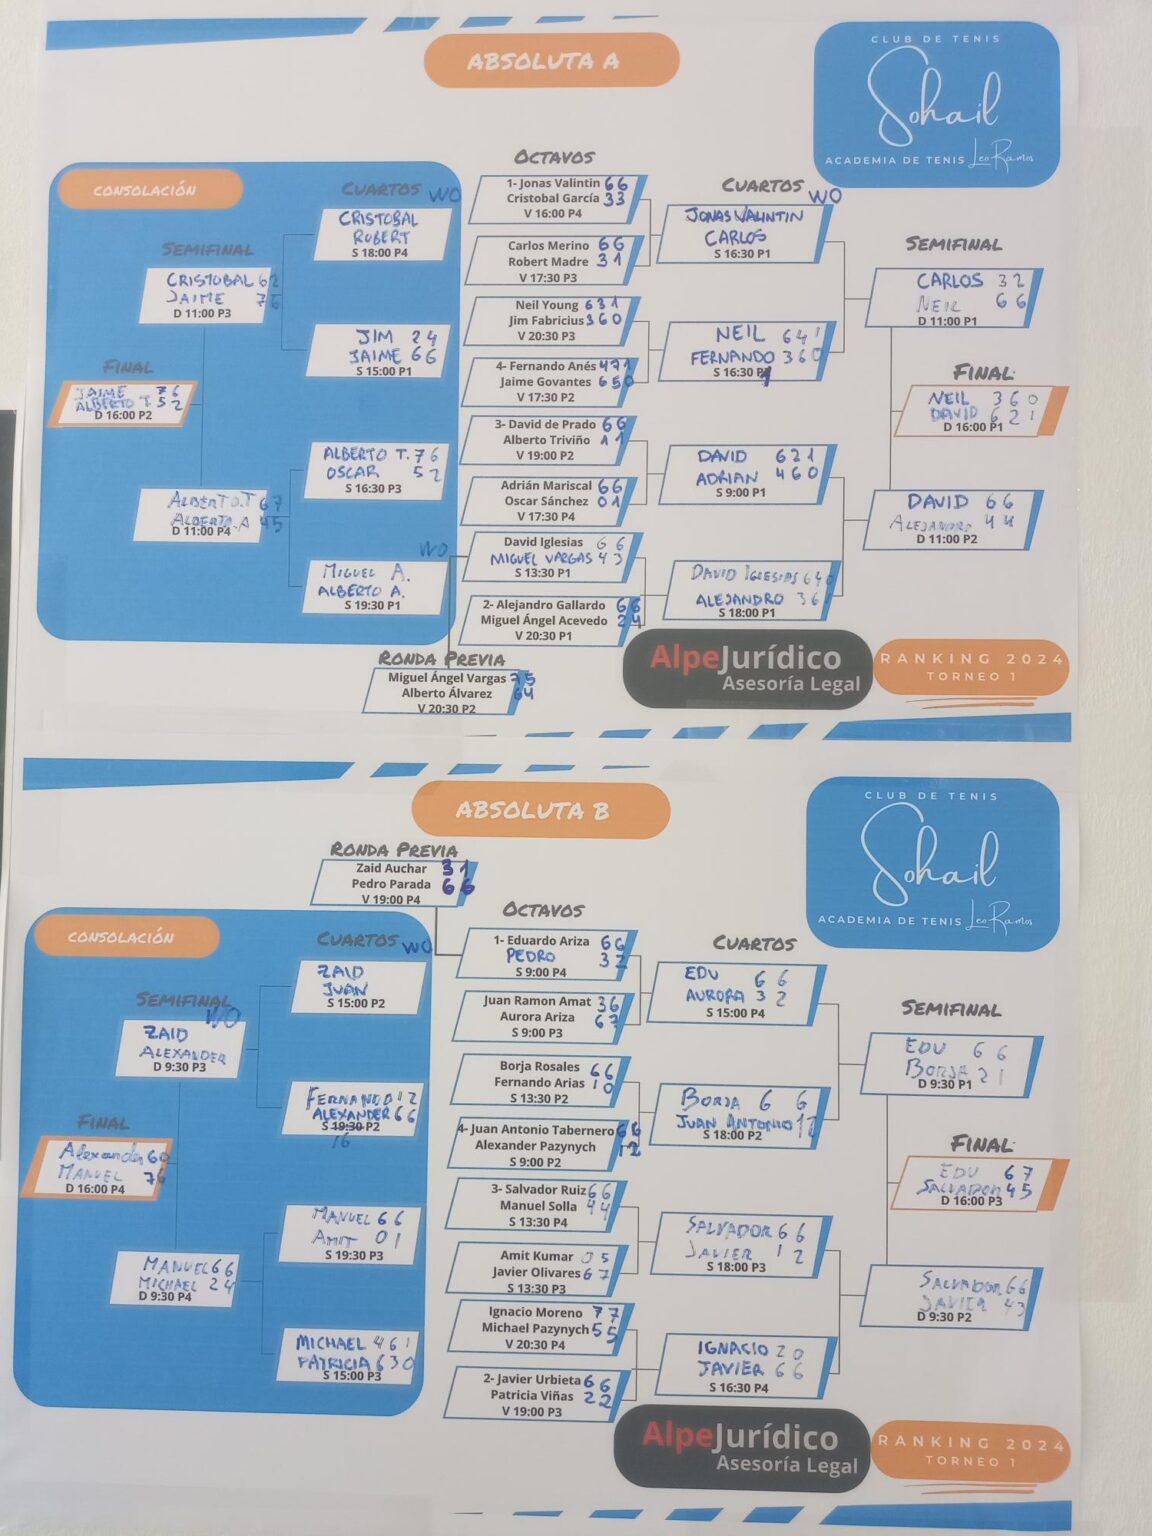 ABSOLUTA A
CLUB DE TENIS
Sohail
ACADEMIA DE TENIS Leo Ramos
CONSOLACIÓN
CUARTOS WO
CRISTOBAL
ROBERT
S 18:00 P4
SEMIFINAL
CRISTOBAL 6 2
JAIME 7 6
D 11:00 P3
JIM 2 4
JAIME 6 6
S 15:00 P1
FINAL
JAIME 7 6
ALBERTO T. 5 2
D 16:00 P2
ALBERTO T. 7 6
OSCAR 5 2
S 16:30 P3
ALBERTO.T 6 7
ALBERTO.A 4 5
D 11:00 P4
WO
MIGUEL A.
ALBERTO A.
S 19:30 P1
OCTAVOS
1- Jonas Valintin 6 6
Cristobal García 3 3
V 16:00 P4
Carlos Merino 6 6
Robert Madre 3 1
V 17:30 P3
Neil Young 6 3 1
Jim Fabricius 3 6 0
V 20:30 P3
4- Fernando Anés 4 7 1
Jaime Govantes 6 5 0
V 17:30 P2
3- David de Prado 6 6
Alberto Triviño 1 1
V 19:00 P2
Adrián Mariscal 6 6
Oscar Sánchez 0 1
V 17:30 P4
David Iglesias 6 6
MIGUEL VARGAS 4 3
S 13:30 P1
2- Alejandro Gallardo 6 6
Miguel Ángel Acevedo 2 4
V 20:30 P1
RONDA PREVIA
Miguel Ángel Vargas 7 5
Alberto Álvarez 6 4
V 20:30 P2
CUARTOS WO
JONAS VALINTIN
CARLOS
S 16:30 P1
NEIL 6 4 1
FERNANDO 3 6 0
S 16:30 P1
DAVID 6 2 1
ADRIAN 4 6 0
S 9:00 P1
DAVID IGLESIAS 6 4 0
ALEJANDRO 3 6 1
S 18:00 P1
SEMIFINAL
CARLOS 3 2
NEIL 6 6
D 11:00 P1
FINAL
NEIL 3 6 0
DAVID 6 2 1
D 16:00 P1
DAVID 6 6
ALEJANDRO 4 4
D 11:00 P2
AlpeJurídico
Asesoría Legal
RANKING 2024
TORNEO 1
ABSOLUTA B
CLUB DE TENIS
Sohail
ACADEMIA DE TENIS Leo Ramos
RONDA PREVIA
Zaid Auchar 3 1
Pedro Parada 6 6
V 19:00 P4
CONSOLACIÓN
CUARTOS WO
ZAID
JUAN
S 15:00 P2
SEMIFINAL
WO
ZAID
ALEXANDER
D 9:30 P3
FERNANDO 1 2
ALEXANDER 6 6
S 19:30 P2
16
FINAL
Alexander 6 0
MANUEL 7 6
D 16:00 P4
MANUEL 6 6
AMIT 0 1
S 19:30 P3
MANUEL 6 6
MICHAEL 2 4
D 9:30 P4
MICHAEL 4 6 1
PATRICIA 6 3 0
S 15:00 P3
OCTAVOS
1- Eduardo Ariza 6 6
PEDRO 3 2
S 9:00 P4
Juan Ramon Amat 3 6
Aurora Ariza 6 7
S 9:00 P3
Borja Rosales 6 6
Fernando Arias 1 0
S 13:30 P2
4- Juan Antonio Tabernero 6 6
Alexander Pazynych 1 2
S 9:00 P2
3- Salvador Ruiz 6 6
Manuel Solla 4 4
S 13:30 P4
Amit Kumar 0 5
Javier Olivares 6 7
S 13:30 P3
Ignacio Moreno 7 7
Michael Pazynych 5 5
V 20:30 P4
2- Javier Urbieta 6 6
Patricia Viñas 2 2
V 19:00 P3
CUARTOS
EDU 6 6
AURORA 3 2
S 15:00 P4
BORJA 6 6
JUAN ANTONIO 1 2
S 18:00 P2
SALVADOR 6 6
JAVIER 1 2
S 18:00 P3
IGNACIO 2 0
JAVIER 6 6
S 16:30 P4
SEMIFINAL
EDU 6 6
BORJA 2 1
D 9:30 P1
FINAL
EDU 6 7
SALVADOR 4 5
D 16:00 P3
SALVADOR 6 6
JAVIER 4 3
D 9:30 P2
AlpeJurídico
Asesoría Legal
RANKING 2024
TORNEO 1